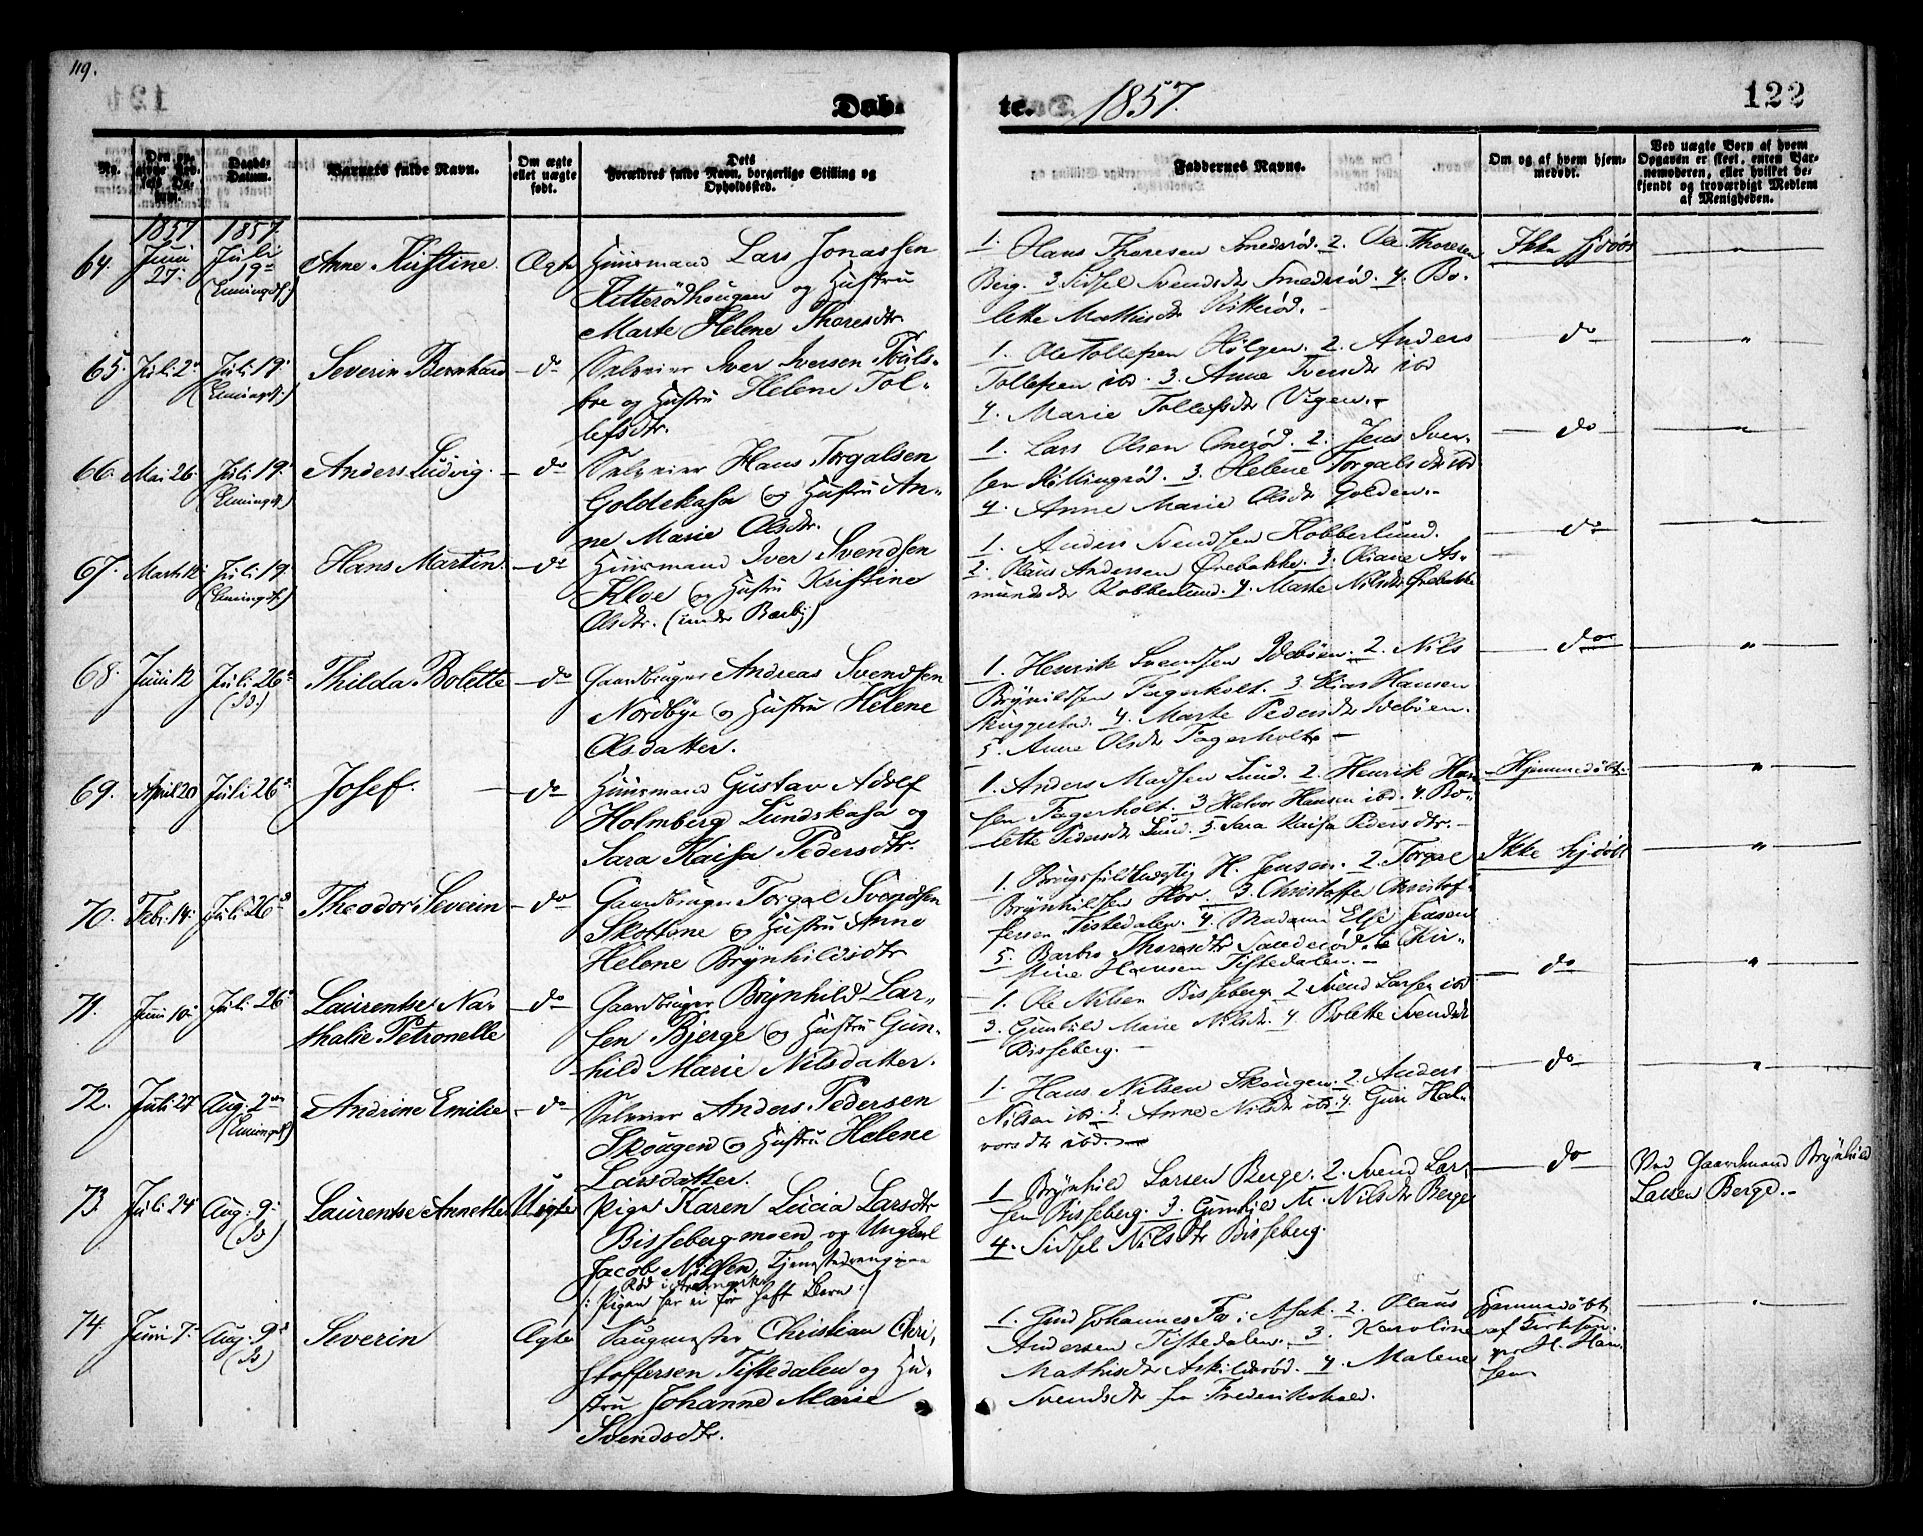 119.
Døb-
te. 1857.
122
No.
Den op-
givne Fød-
sels Da-
tum.
Daabs-
Datum.
Barnets fulde Navn.
Om ægte
ellet uægte
født.
Dets
Forældres fulde Navn, borgerlige Stilling og
Opholdssted.
Faddernes Navne.
Om og af hvem hjem-
medøbt.
Ved uægte Børn af hvem
Opgaven er skeet, enten Bar-
nemoderen, eller hvilket be-
kjendt og troværdigt Medlem
af Menigheden.
1857 1857.
64. Juni 27. Juli 19de (Enningd.) Anne Kirstine. Ægte
Huusmand Lars Jonassen
Kitterødhougen og Hustru
Marte Helene Thoresdtr.
1. Hans Thoresen Smedsrød. 2. Ole Thoresen
Berg. 3. Sidsel Svendsdtr Smedsrød. 4. Bo-
lette Mathisdtr Kitterød.
Ikke hjdøbt
"
65. Juli 2. Juli 19. (Enningd.) Severin Bernhard do
Selveier Iver Iversen
og Hustru Helene Tol-
lefsdtr.
1. Ole Tollefsen 2. Anders
Tollefsen ibd. 3. Anne Svensdtr ibd
4. Marie Tollefsdtr Vigen.
do
"
66. Mai 26. Juli 19. (Enningd.) Anders Ludvig. do
Selveier Hans Torgalsen
Goldekasa og Hustru An-
ne Marie Olsdtr.
1. Lars Olsen 2. Jens Iver-
sen 3. Helene Torgalsdtr ibd
4. Anne Marie Olsdtr Golden.
do
"
67. Marts 12. Juli 19. (Enningd.) Hans Martin. do
Huusmand Iver Svendsen
Kloe og Hustru Kristine
Olsdtr. (under Barby)
1. Anders Svendsen Kobberlund.
2. Olaus Andersen Ørebakke. 3. Oliane As-
mundsdtr Kobberlund. 4. Marte Nilsdtr Ørebakke
do
"
68. Juni 12 Juli 26de (Is.) Thilda Bolette do
Gaardbruger Andreas Svendsen
Nordbye og Hustru Helene
Olsdatter.
1. Henrik Svendsen Idebøen. 2. Nils
Brynildsen Fagerholt. 3. Elias Hansen
4. Marte Pedersdtr Idebøen.
5. Anne Olsdtr Fagerholt.
do
"
69. April 20 Juli 26de Josef. do
Huusmand Gustav Adolf
Holmberg Lundskasa og
Sara Kaisa Pedersdtr.
1. Anders Madsen Lund. 2. Henrik Han-
sen Fagerholt. 3. Halvor Hansen ibd. 4. Bo-
lette Pedersdtr Lund. 5. Sara Kaisa Pedersdtr.
Hjemmedøbt
"
70. Febr. 14. Juli 26de Theodor Severin do
Gaardbruger Torgal Svendsen
Skottene og Hustru Anne
Helene Brynhildsdtr
1. H. Jensen. 2. Torgal
Brynhildsen 3. Christoffer Christof-
fersen Tistedalen. 4. Madam Else Jensen
5. Barbro Thoresdtr 6. Kir-
stine Hansen Tistedalen.
Ikke hjdøbt
"
71. Juni 10. Juli 26de Laurentse Na-
thalie Petronelle do
Gaardbruger Brynhild Lar-
sen Bjerge og Hustru Gun-
hild Marie Nilsdatter.
1. Ole Nilsen Bisseberg. 2. Svend Larsen ibd
3. Gunhild Marie Nilsdtr. 4. Bolette Svendsdtr
Bisseberg.
do
"
72. Juli 27 Aug. 2den (Enningd.) Andrine Emilie do
Selveier Anders Pedersen
Skougen og Hustru Helene
Larsdatter.
1. Hans Nilsen Skougen. 2. Anders
Nilsen ibd. 3. Anne Nilsdtr ibd. 4. Guri Hal-
vorsdtr ibd.
do
"
73. Juli 24 Aug. 9. (Is) Laurentse Annette Uægte
Pige Karen Lucia Larsdtr
Bissebergmoen og Ungkarl
Jacob Nilsen, Tjenestedreng paa
Rød i Aremark
/: Pigen har ei før havt Barn :/
1. Brynhild Larsen Berge. 2. Svend Lar-
sen Bisseberg. 3. Gunhild M. Nilsdtr Berge
4. Sidsel Nilsdtr Bisseberg.
do
Ved Gaardmand Brynhild
Larsen Berge.
74. Juni 7. Aug. 9de (Is) Severin Ægte
Saugmester Christian Chri-
stoffersen Tistedalen og Hu-
stru Johanne Marie
Svendsdtr.
1. Johannes 2. Olaus
Andersen Tistedalen. 3. Karoline
Mathisdtr Askildsrød. 4. Malene
Svendsdtr fra Frederikshald.
Hjemmedøbt
af Kirkesan-
ger H. Han-
sen
"